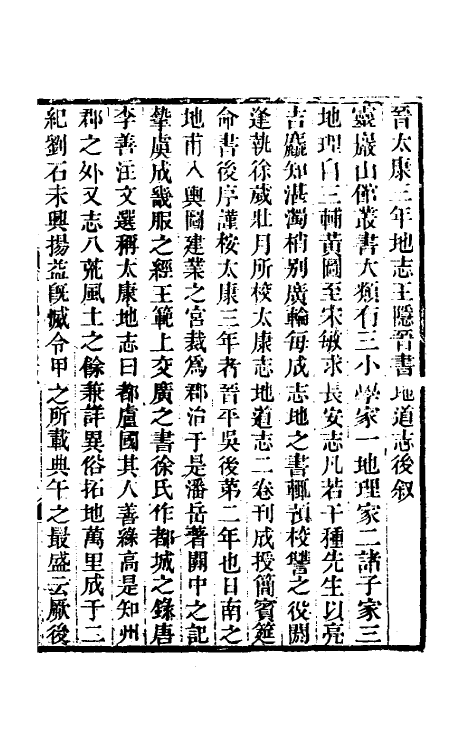 晉太康三年地志王隱晉書地道志後叙
靈巖山館叢書大類有三小學家一地理家二諸子家三
地理自三輔黃圖至宋敏求長安志凡若干種先生以亮
吉麤知湛濁梢别廣輪每成志地之書輒預校讐之役閼
逢執徐歲壯月所校太康志地道志二卷刊成授簡賓筵
命書後序謹桉太康三年者晉平吳後第二年也日南之
地甫入輿圖建業之宮裁爲郡治于是潘岳著關中之記
摯虞成畿服之經王範上交廣之書徐氏作都城之錄唐
李善注文選稱太康地志曰都盧國其人善緣高是知州
郡之外又志八荒風土之餘兼詳異俗拓地萬里成于二
紀劉石未興揚益旣憾令甲之所載典午之最盛云厥後